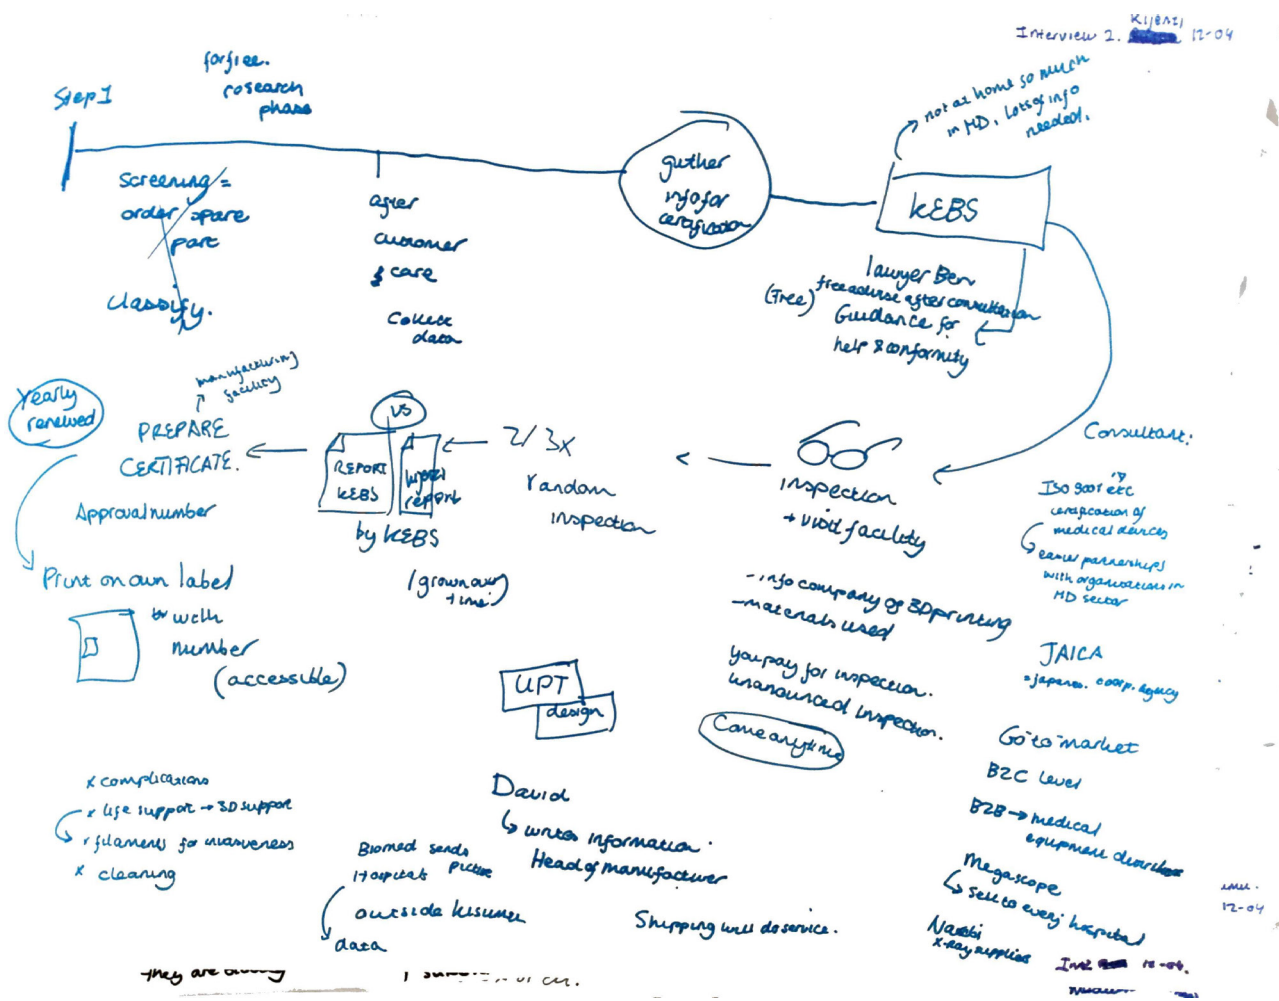 Kijenzi
Interview 2. 12-04
Step 1
for free.
research
phase
screening =
order spare
part
classify.
after
customer
& care
collect
data
gather
info for
certification
KEBS
not at home so much
in MD, lots of info
needed.
lawyer Ben
free advise after consultation
(Free)
Guidance for
help & conformity
Consultant:
ISO 9001 etc
certification of
medical devices
easier partnerships
with organisations in
MD sector
JAICA
= japanes. coop. agency
Go to market
B2C level
B2B → medical
equipment
Megascope
sell to every hospital
Nairobi
X-ray supplies
inspection
+ visit facility
- info company of 3D printing
- materials used
you pay for inspection.
unanounced inspection.
Come anytime
2/3x
random
inspection
VS
REPORT
KEBS
report
by KEBS
/grown over
time
manufacturing
facility
PREPARE
CERTIFICATE.
Yearly
renewed
Approval number
Print on own label
with
number
(accessible)
UPT
design
David
writes information.
Head of manufacturer
x complications
x life support → 3D support
x filaments for invasiveness
x cleaning
Biomed sends
Hospitals picture
outside kisumu
data
Shipping will do service.
12-04
12-04.
They are